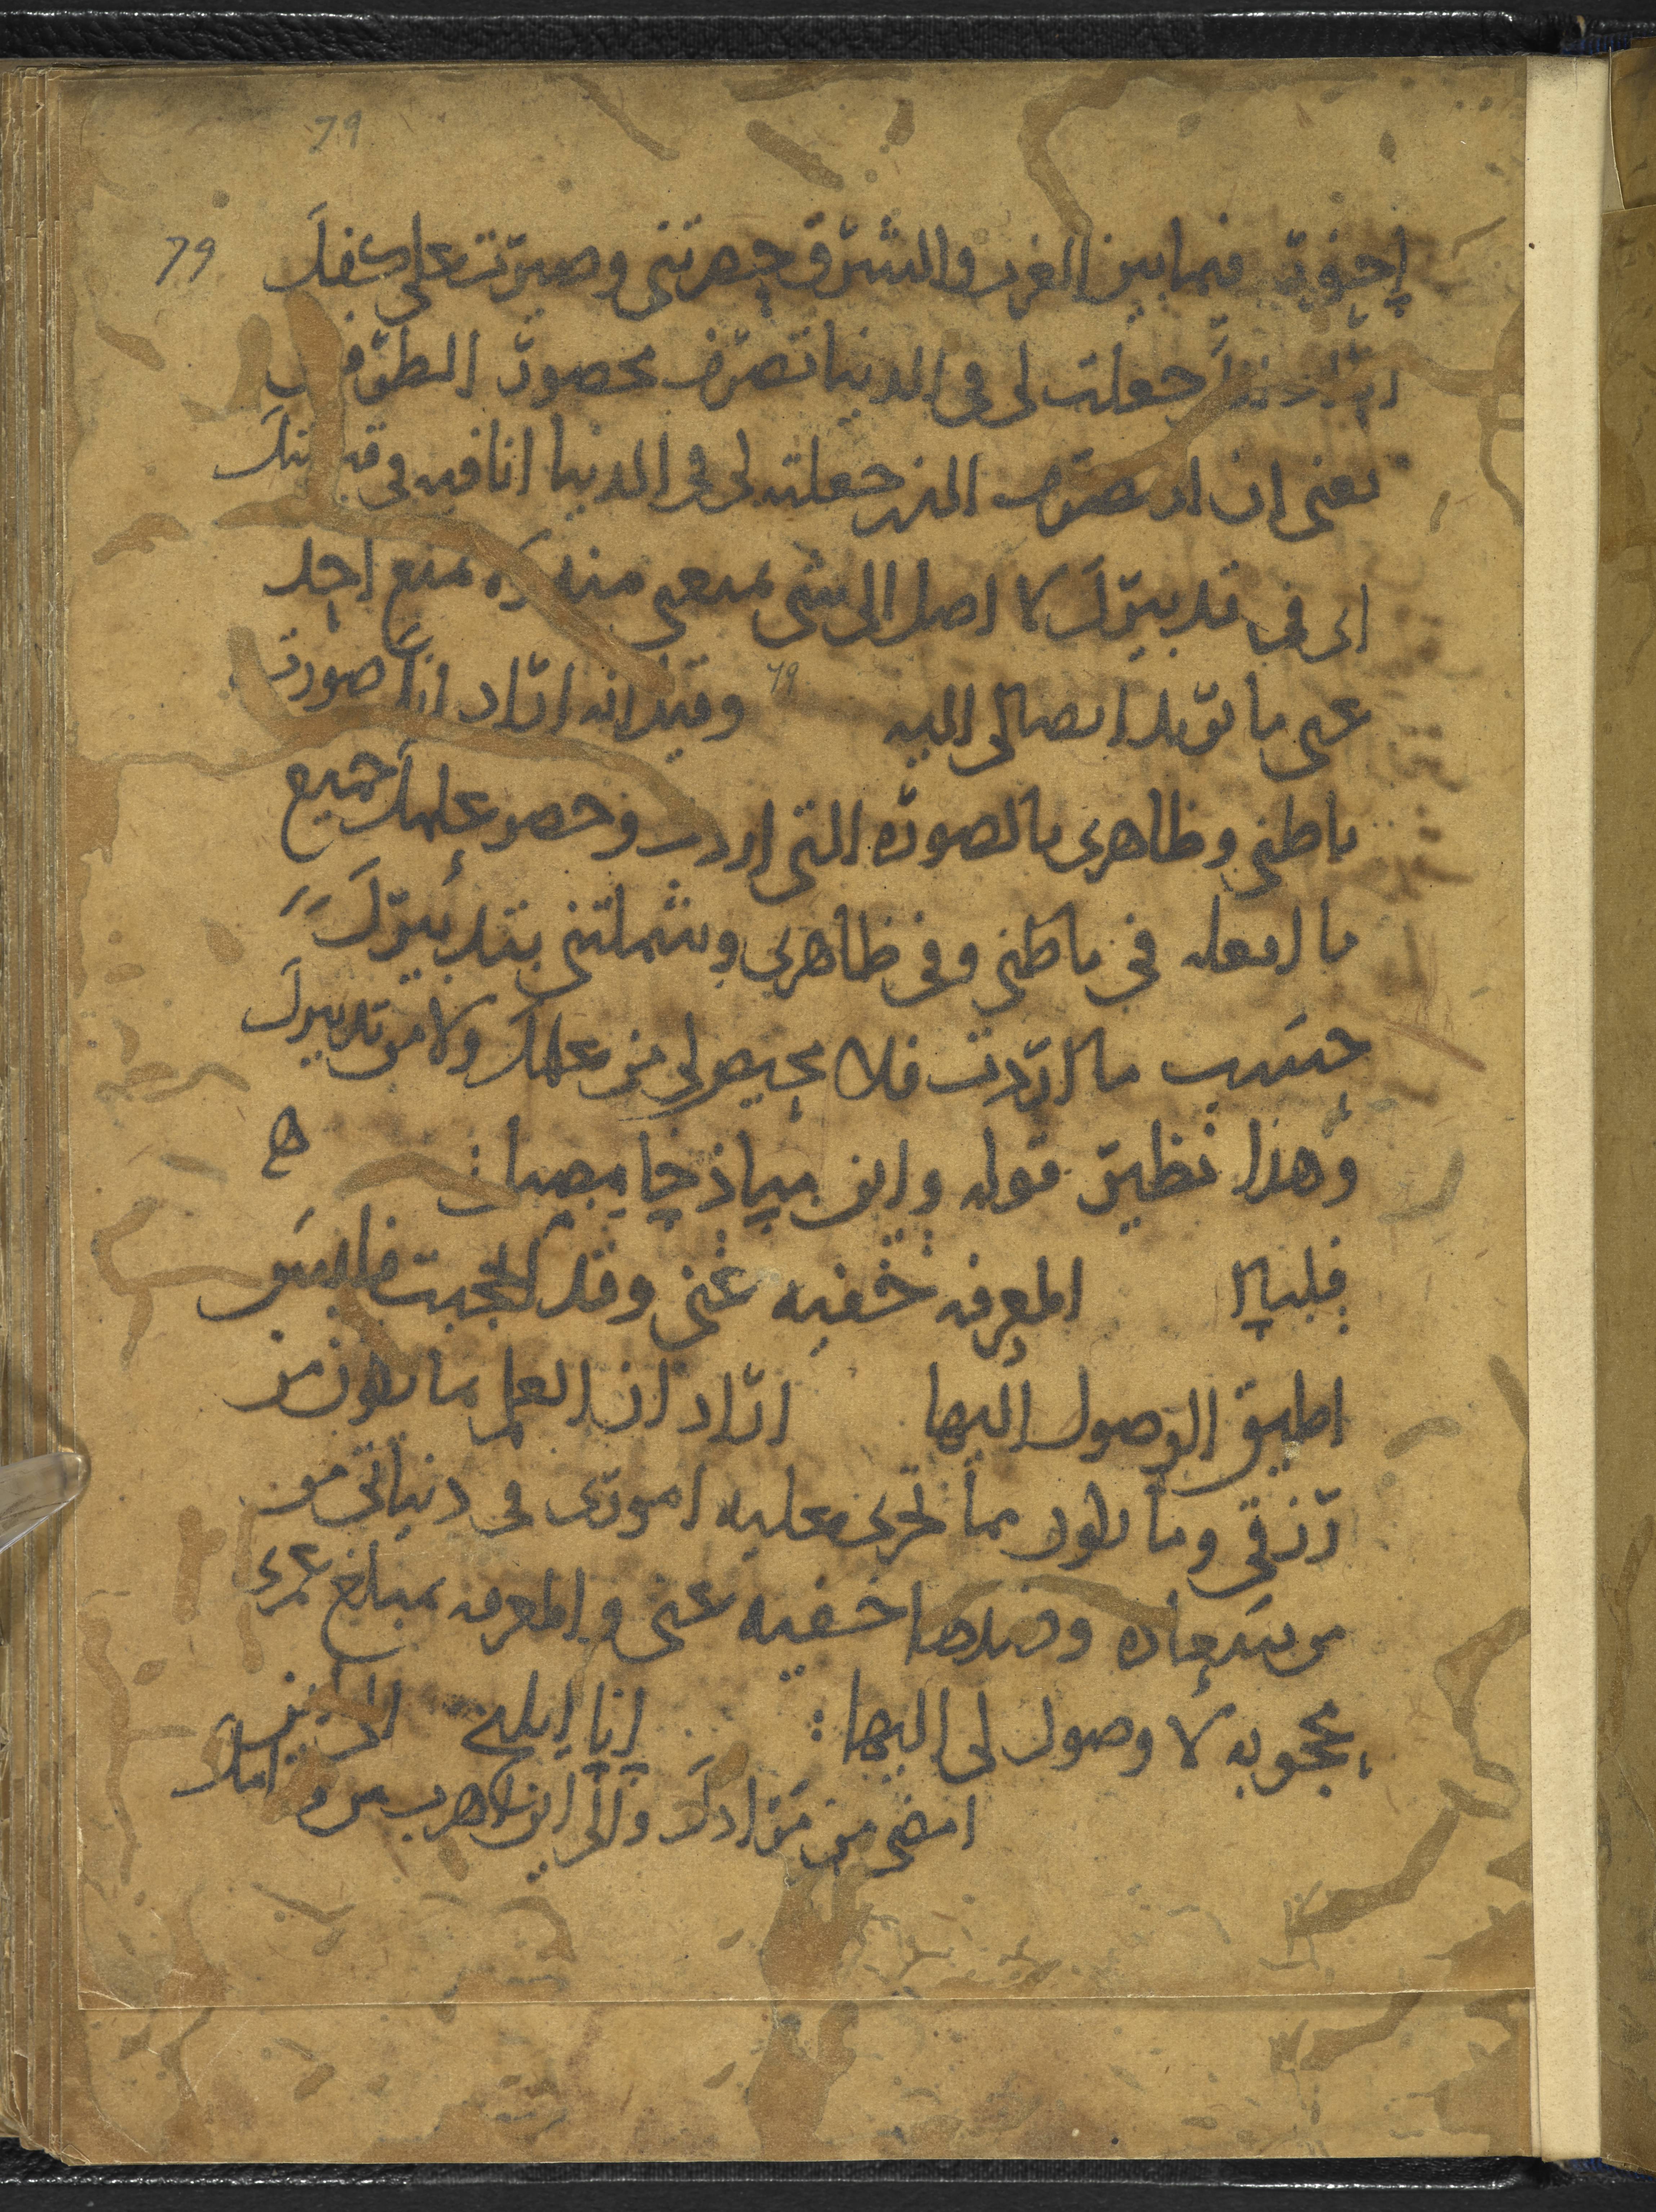 79
79 إحور فيما بين الغرب والشرق حصرتني وصيرت علي كفك
اراد بذلك جعلت لي في الدنيا تصرف محصور الطرفين
يعني ان التصرف الذي جعلته لي في الدنيا انا فيه في قبضتك
اي في تدبيرك لا اصل الى شي تمنعني منه ولا يمنع احد
عني ما تريد ايصالي اليه 79 وقيل انه اراد انك صورت
باطني وظاهري بالصورة التي اردت وحصر علمك جميع
ما افعله في باطني وفي ظاهري وشملتني بتدبيرك
حسب ما اردت فلا محيص لي من علمك ولا من تدبيرك
وهذا نظير قوله واين مياذخا يصيل : ه
فلياا المعرفه خفيه عني وقد احتجبت فليس
اطيق الوصول اليها اراد ان العلم بما يكون من
رزقي وما يكون مما تجري عليه اموري في دنياتي من
من سعاده وضدها خفيه عني والمعرفه بمبلغ عمري
محجوبه لا وصول لي اليها : انا ايليخ الى اين
امضي من مرادك والى اين اهرب من